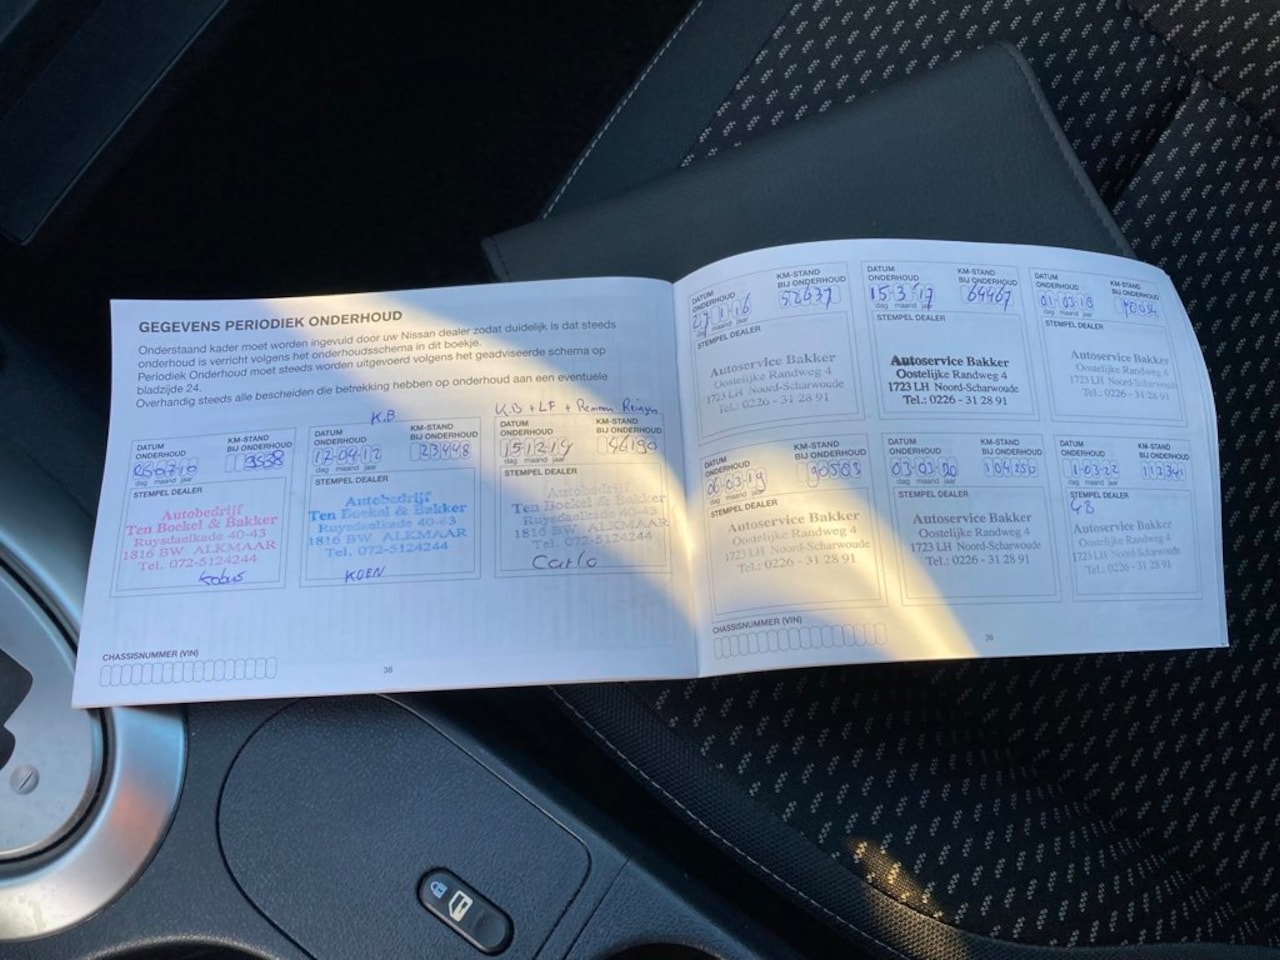 GEGEVENS PERIODIEK ONDERHOUD
Onderstaand kader moet worden ingevuld door uw Nissan dealer zodat duidelijk is dat steeds
onderhoud is verricht volgens het onderhoudsschema in dit boekje.
Periodiek Onderhoud moet steeds worden uitgevoerd volgens het geadviseerde schema op
bladzijde 24.
Overhandig steeds alle bescheiden die betrekking hebben op onderhoud aan een eventuele
DATUM
ONDERHOUD
KM-STAND
BIJ ONDERHOUD
dag maand jaar
STEMPEL DEALER
Autobedrijf
Ten Boekel & Bakker
Ruysdaelkade 40-43
1816 BW ALKMAAR
Tel. 072-5124244
K.B
DATUM
ONDERHOUD
KM-STAND
BIJ ONDERHOUD
12-04-12
23448
dag maand jaar
STEMPEL DEALER
Autobedrijf
Ten Boekel & Bakker
Ruysdaelkade 40-43
1816 BW ALKMAAR
Tel. 072-5124244
KOEN
K.B + LF + Remmen Reinigen
DATUM
ONDERHOUD
KM-STAND
BIJ ONDERHOUD
15-12-14
46190
dag maand jaar
STEMPEL DEALER
Autobedrijf
Ten Boekel & Bakker
Ruysdaelkade 40-43
1816 BW ALKMAAR
Tel. 072-5124244
Carlo
CHASSISNUMMER (VIN)
38
DATUM
ONDERHOUD
KM-STAND
BIJ ONDERHOUD
52637
dag maand jaar
STEMPEL DEALER
Autoservice Bakker
Oostelijke Randweg 4
1723 LH Noord-Scharwoude
Tel.: 0226 - 31 28 91
DATUM
ONDERHOUD
KM-STAND
BIJ ONDERHOUD
15-3-17
64467
dag maand jaar
STEMPEL DEALER
Autoservice Bakker
Oostelijke Randweg 4
1723 LH Noord-Scharwoude
Tel.: 0226 - 31 28 91
DATUM
ONDERHOUD
KM-STAND
BIJ ONDERHOUD
01-03-18
dag maand jaar
STEMPEL DEALER
Autoservice Bakker
Oostelijke Randweg 4
1723 LH Noord-Scharwoude
Tel.: 0226 - 31 28 91
DATUM
ONDERHOUD
KM-STAND
BIJ ONDERHOUD
06-03-19
90503
dag maand jaar
STEMPEL DEALER
Autoservice Bakker
Oostelijke Randweg 4
1723 LH Noord-Scharwoude
Tel.: 0226 - 31 28 91
DATUM
ONDERHOUD
KM-STAND
BIJ ONDERHOUD
03-03-20
104250
dag maand jaar
STEMPEL DEALER
Autoservice Bakker
Oostelijke Randweg 4
1723 LH Noord-Scharwoude
Tel.: 0226 - 31 28 91
DATUM
ONDERHOUD
KM-STAND
BIJ ONDERHOUD
112341
dag maand jaar
STEMPEL DEALER
Autoservice Bakker
Oostelijke Randweg 4
1723 LH Noord-Scharwoude
Tel.: 0226 - 31 28 91
CHASSISNUMMER (VIN)
39